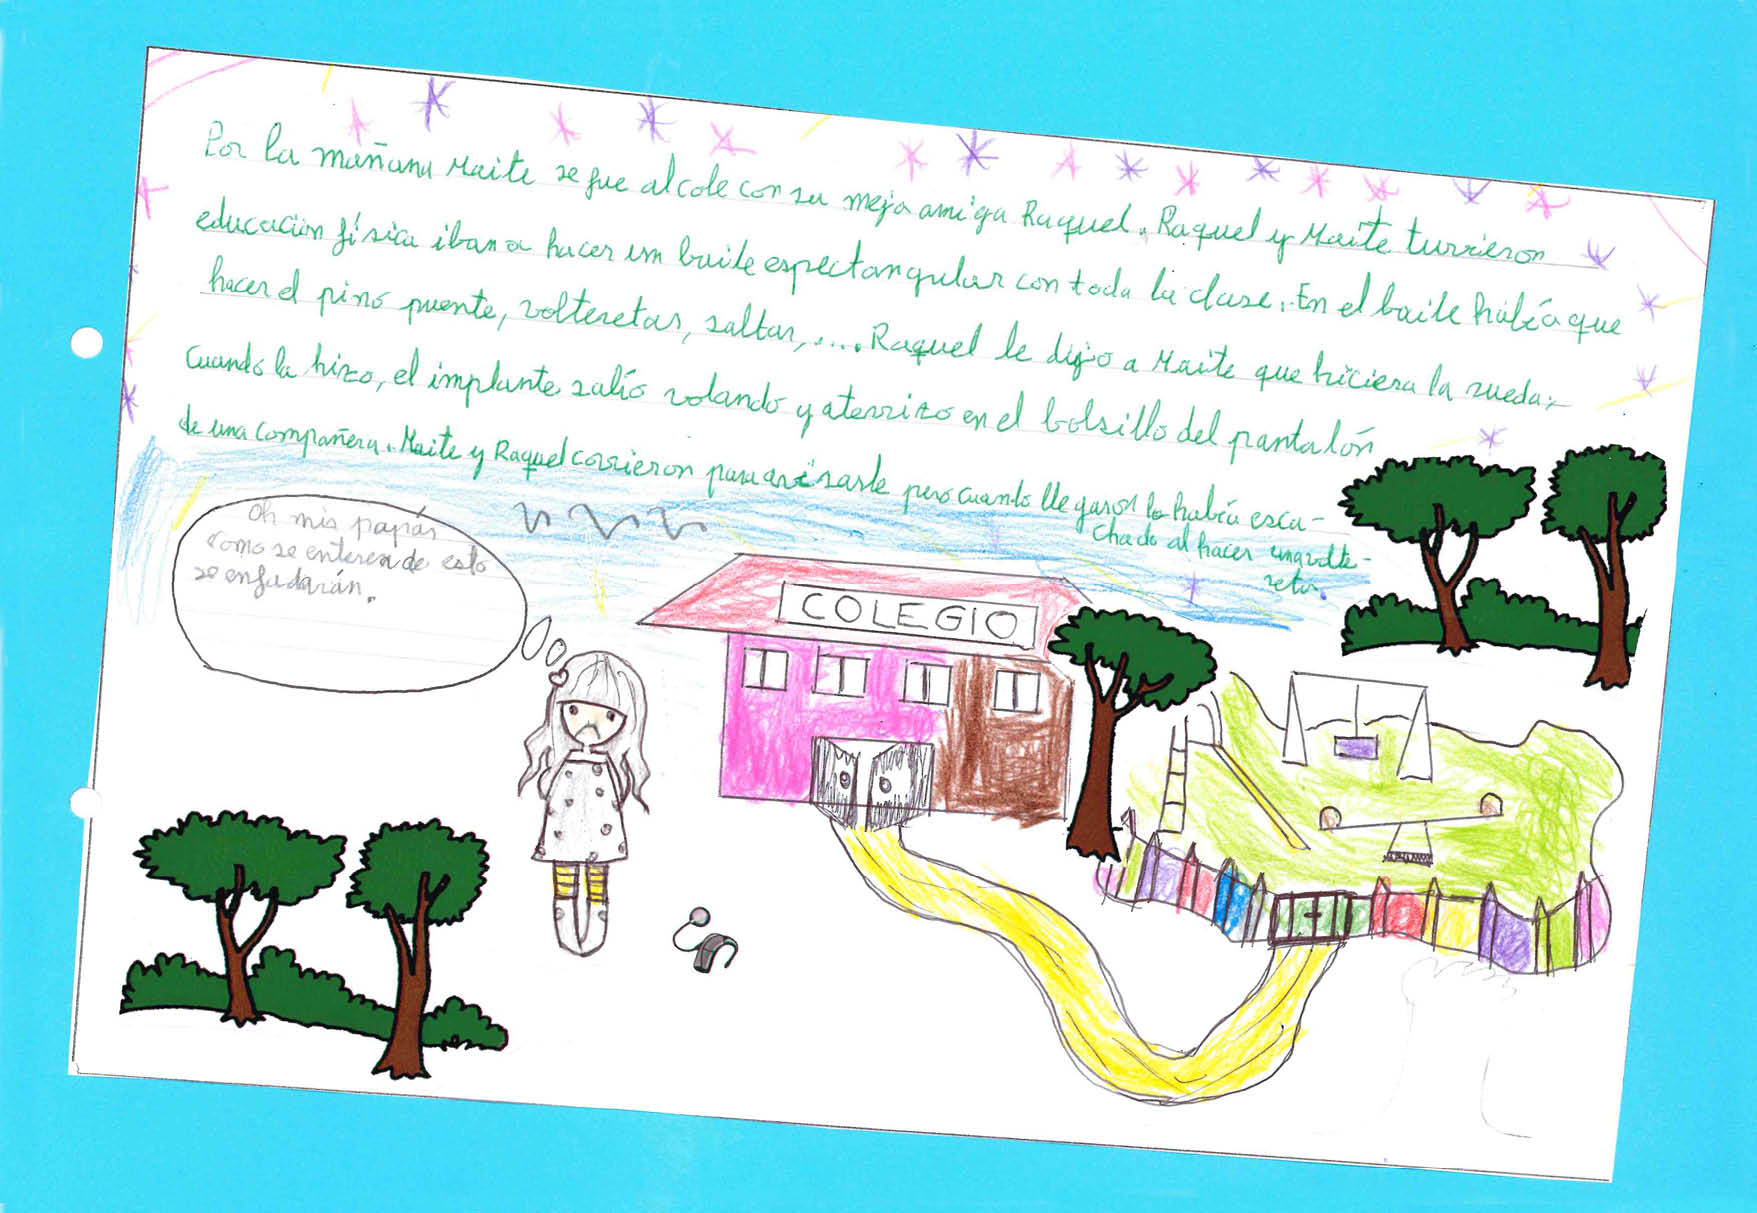 Por la mañana Maite se fue al cole con su mejo amiga Raquel. Raquel y Maite tuvieron
educación física iban a hacer un baile espectangular con toda la clase. En el baile había que
hacer el pino puente, volteretas, saltar,.... Raquel le dijo a Maite que hiciera la rueda,
cuando la hizo, el implante salío volando y aterrizo en el bolsillo del pantalón
de una compañera. Maite y Raquel corrieron para avisarle pero cuando llegaron lo había esca-
chado al hacer una volte-
reta.
Oh mis papás
como se enteren de esto
se enfadarán.
COLEGIO